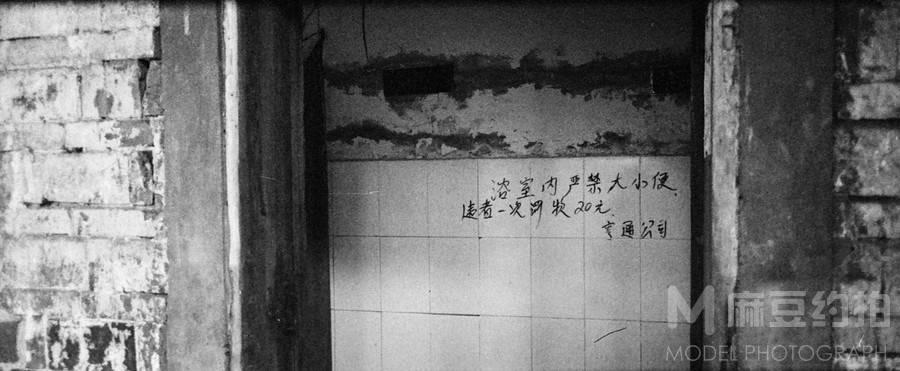 浴室内严禁大小便、
违者一次罚款20元.
亨通公司
M 麻豆约拍
MODEL PHOTOGRAPH